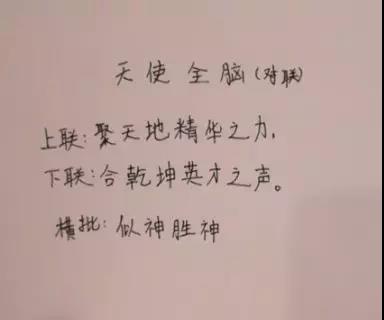 天使全脑(对联)
上联:聚天地精华之力,
下联:合乾坤英才之声。
横批:似神胜神